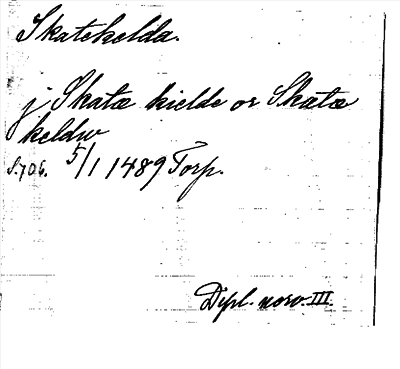 Skatekelda.
j Skatæ kielde or Skatæ
keldw
S. 706. 5/1 1489 Torp.
Dipl. norv. III.